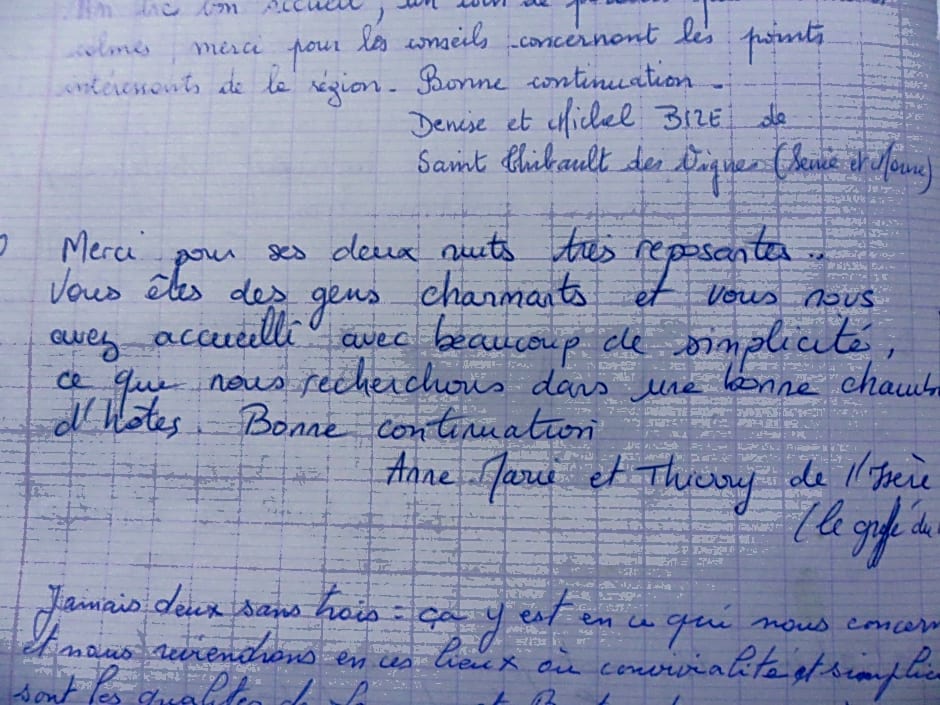 un coin de
calmes, merci pour les conseils concernant les points
intéressants de la région. Bonne continuation.
Denise et Michel BIZE de
Saint Thibault des Vignes (Seine et Marne)
Merci pour ses deux nuits très reposantes..
Vous êtes des gens charmants et vous nous
avez accueilli avec beaucoup de simplicité,
ce que nous recherchons dans une bonne chamb
d'hôtes. Bonne continuation
Anne Marie et Thierry de l'Isère
(le du
Jamais deux sans trois : ça y est en ce qui nous concern
et nous reviendrons en ces lieux où convivialité et simplic
sont les qualités de